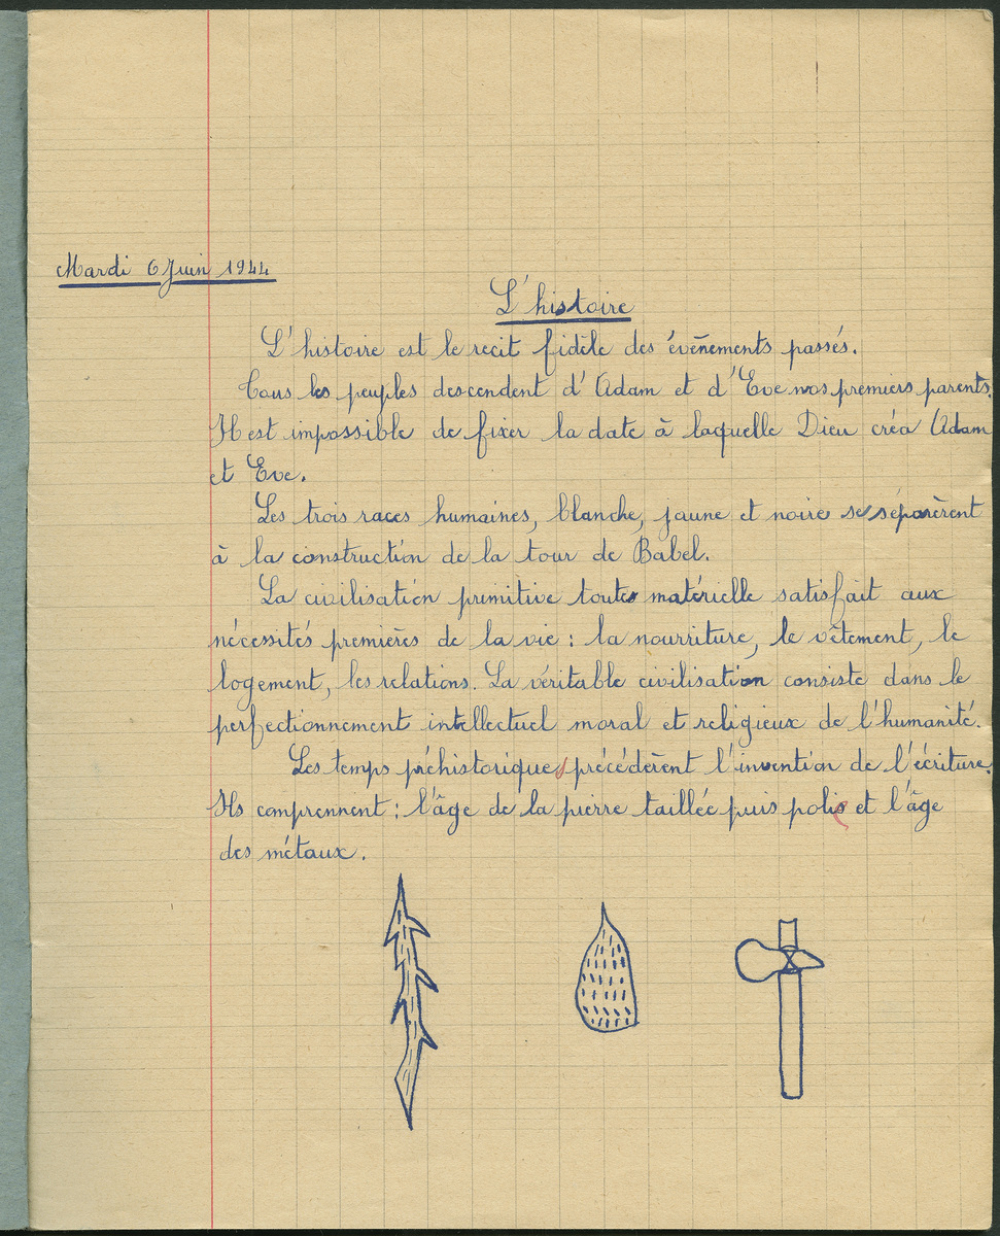 Mardi 6 Juin 1944
L'histoire
L'histoire est le recit fidèle des évènements passés.
Tous les peuples descendent d'Adam et d'Eve nos premiers parents.
Il est impossible de fixer la date à laquelle Dieu créa Adam
et Eve.
Les trois races humaines, blanche, jaune et noire se séparèrent
à la construction de la tour de Babel.
La civilisation primitive toute matérielle satisfait aux
nécessités premières de la vie : la nourriture, le vêtement, le
logement, les relations. La véritable civilisation consiste dans le
perfectionnement intellectuel moral et religieux de l'humanité.
Les temps préhistoriques précédèrent l'invention de l'écriture.
Ils comprennent : l'âge de la pierre taillée puis polie et l'âge
des métaux.